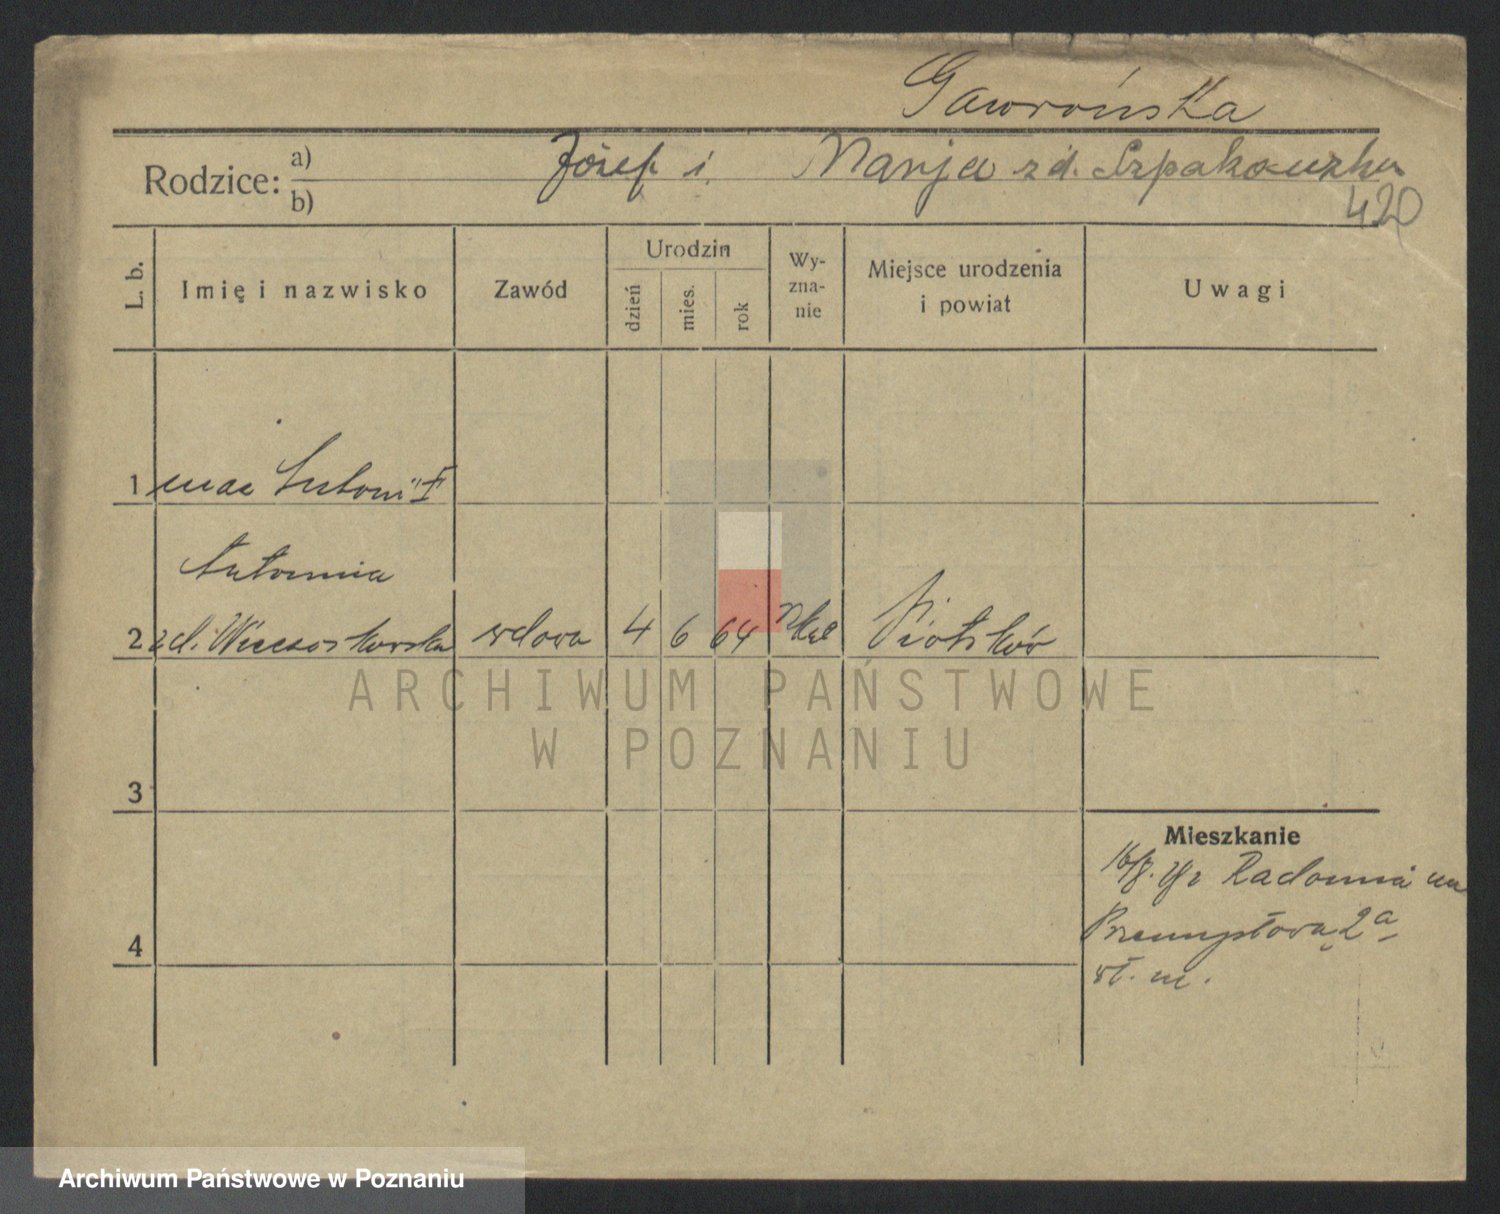 Gawrońska
Rodzice: a) b) Józef i Marja zd.
420
L. b.
Imię i nazwisko
Zawód
Urodzin
dzień
mies.
rok
Wy-
zna-
nie
Miejsce urodzenia
i powiat
Uwagi
1 mąż Antoni "I"
Antonina
2 zd. wdowa 4 6 64 rkat Piotrków
ARCHIWUM PAŃSTWOWE
W POZNANIU
3
Mieszkanie
16/8. Radomia na
4 Przemysłową 2a
wł. m.
Archiwum Państwowe w Poznaniu